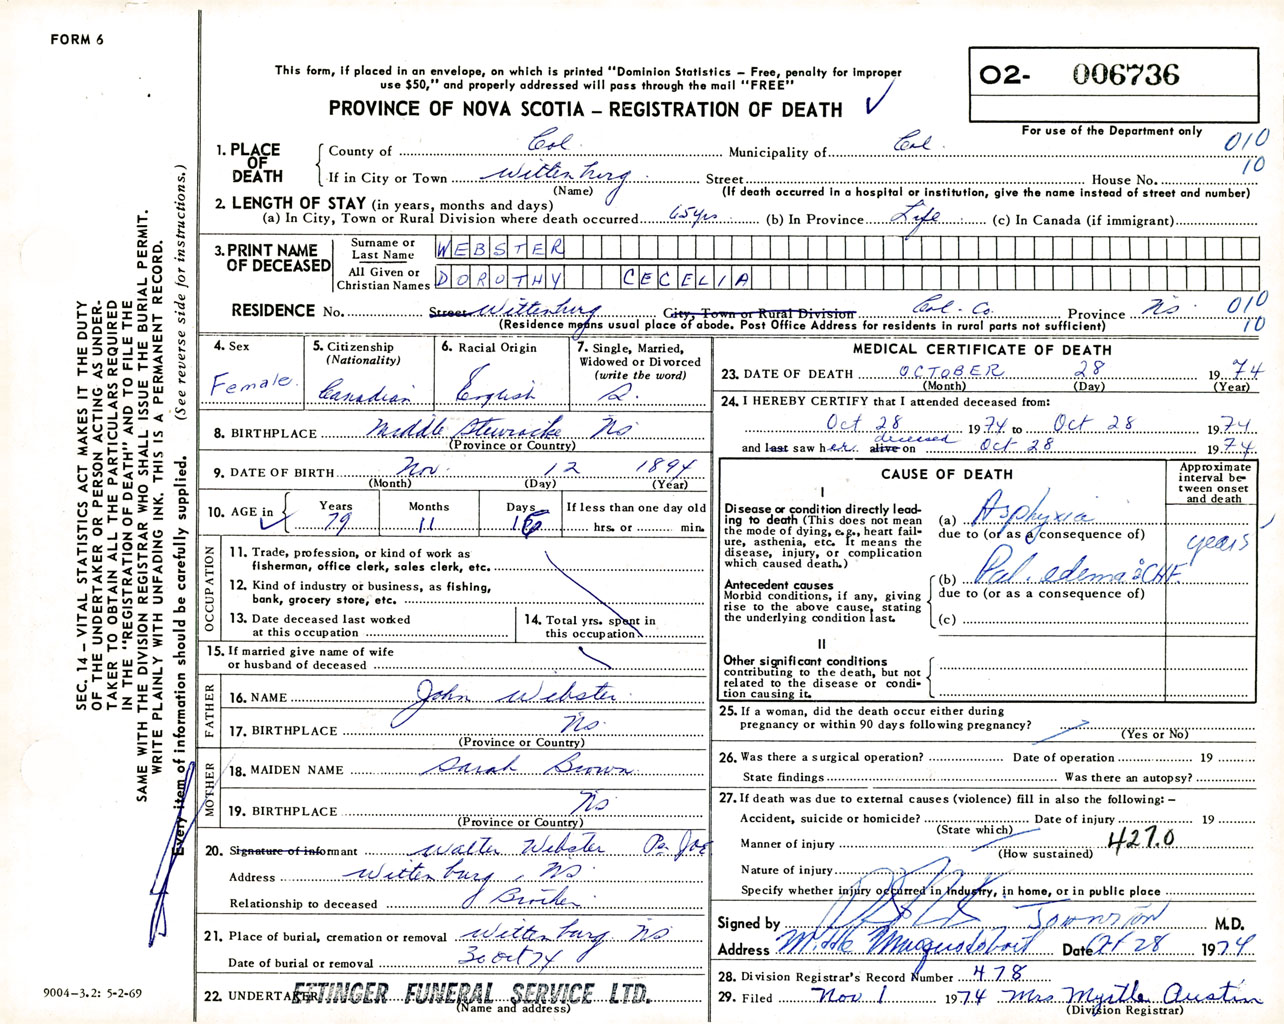 FORM 6
This form, if placed in an envelope, on which is printed "Dominion Statistics – Free, penalty for improper
use $50," and properly addressed will pass through the mail "FREE"
PROVINCE OF NOVA SCOTIA – REGISTRATION OF DEATH
O2- 006736
For use of the Department only
1. PLACE OF DEATH County of Col. Municipality of Col. 010
If in City or Town Wittenburg Street House No. 10
(Name) (If death occurred in a hospital or institution, give the name instead of street and number)
2. LENGTH OF STAY (in years, months and days)
(a) In City, Town or Rural Division where death occurred 65 yrs (b) In Province Life (c) In Canada (if immigrant)
3. PRINT NAME OF DECEASED Surname or Last Name WEBSTER
All Given or Christian Names DOROTHY CECELIA
RESIDENCE No. Street Wittenburg City, Town or Rural Division Col. Co. Province NS 010
(Residence means usual place of abode. Post Office Address for residents in rural parts not sufficient) 10
4. Sex
Female
5. Citizenship
(Nationality)
Canadian
6. Racial Origin
English
7. Single, Married,
Widowed or Divorced
(write the word)
S.
8. BIRTHPLACE Middle Stewiacke NS
(Province or Country)
9. DATE OF BIRTH Nov. 12 1894
(Month) (Day) (Year)
10. AGE in Years Months Days If less than one day old
79 11 hrs. or min.
OCCUPATION
11. Trade, profession, or kind of work as
fisherman, office clerk, sales clerk, etc.
12. Kind of industry or business, as fishing,
bank, grocery store, etc.
13. Date deceased last worked
at this occupation
14. Total yrs. spent in
this occupation
15. If married give name of wife
or husband of deceased
FATHER
16. NAME John Webster
17. BIRTHPLACE NS
(Province or Country)
MOTHER
18. MAIDEN NAME Sarah Brown
19. BIRTHPLACE NS
(Province or Country)
20. Signature of informant Walter Webster
Address Wittenburg, NS
Relationship to deceased Brother
21. Place of burial, cremation or removal Wittenburg NS
Date of burial or removal 30 Oct 74
22. UNDERTAKER ETTINGER FUNERAL SERVICE LTD.
(Name and address)
MEDICAL CERTIFICATE OF DEATH
23. DATE OF DEATH OCTOBER 28 1974
(Month) (Day) (Year)
24. I HEREBY CERTIFY that I attended deceased from:
Oct 28 1974 to Oct 28 1974
and last saw her deceased alive on Oct 28 1974
CAUSE OF DEATH
Approximate
interval be-
tween onset
and death
I
Disease or condition directly lead-
ing to death (This does not mean
the mode of dying, e.g., heart fail-
ure, asthenia, etc. It means the
disease, injury, or complication
which caused death.)
(a) Asphyxia
due to (or as a consequence of)
years
Antecedent causes
Morbid conditions, if any, giving
rise to the above cause, stating
the underlying condition last.
(b) Pul. edema c̄ CHF
due to (or as a consequence of)
(c)
II
Other significant conditions
contributing to the death, but not
related to the disease or condi-
tion causing it.
25. If a woman, did the death occur either during
pregnancy or within 90 days following pregnancy?
(Yes or No)
26. Was there a surgical operation? Date of operation 19
State findings Was there an autopsy?
27. If death was due to external causes (violence) fill in also the following: –
Accident, suicide or homicide? Date of injury 19
(State which)
Manner of injury 427.0
(How sustained)
Nature of injury
Specify whether injury occurred in industry, in home, or in public place
Signed by M.D.
Address Middle Musquodoboit Date Oct 28 1974
28. Division Registrar's Record Number 478
29. Filed Nov 1 1974 Mrs Myrtle Austin
(Division Registrar)
SEC. 14 – VITAL STATISTICS ACT MAKES IT THE DUTY
OF THE UNDERTAKER OR PERSON ACTING AS UNDER-
TAKER TO OBTAIN ALL THE PARTICULARS REQUIRED
IN THE "REGISTRATION OF DEATH" AND TO FILE THE
SAME WITH THE DIVISION REGISTRAR WHO SHALL ISSUE THE BURIAL PERMIT.
WRITE PLAINLY WITH UNFADING INK. THIS IS A PERMANENT RECORD.
Every item of information should be carefully supplied. (See reverse side for instructions.)
9004-3.2: 5-2-69